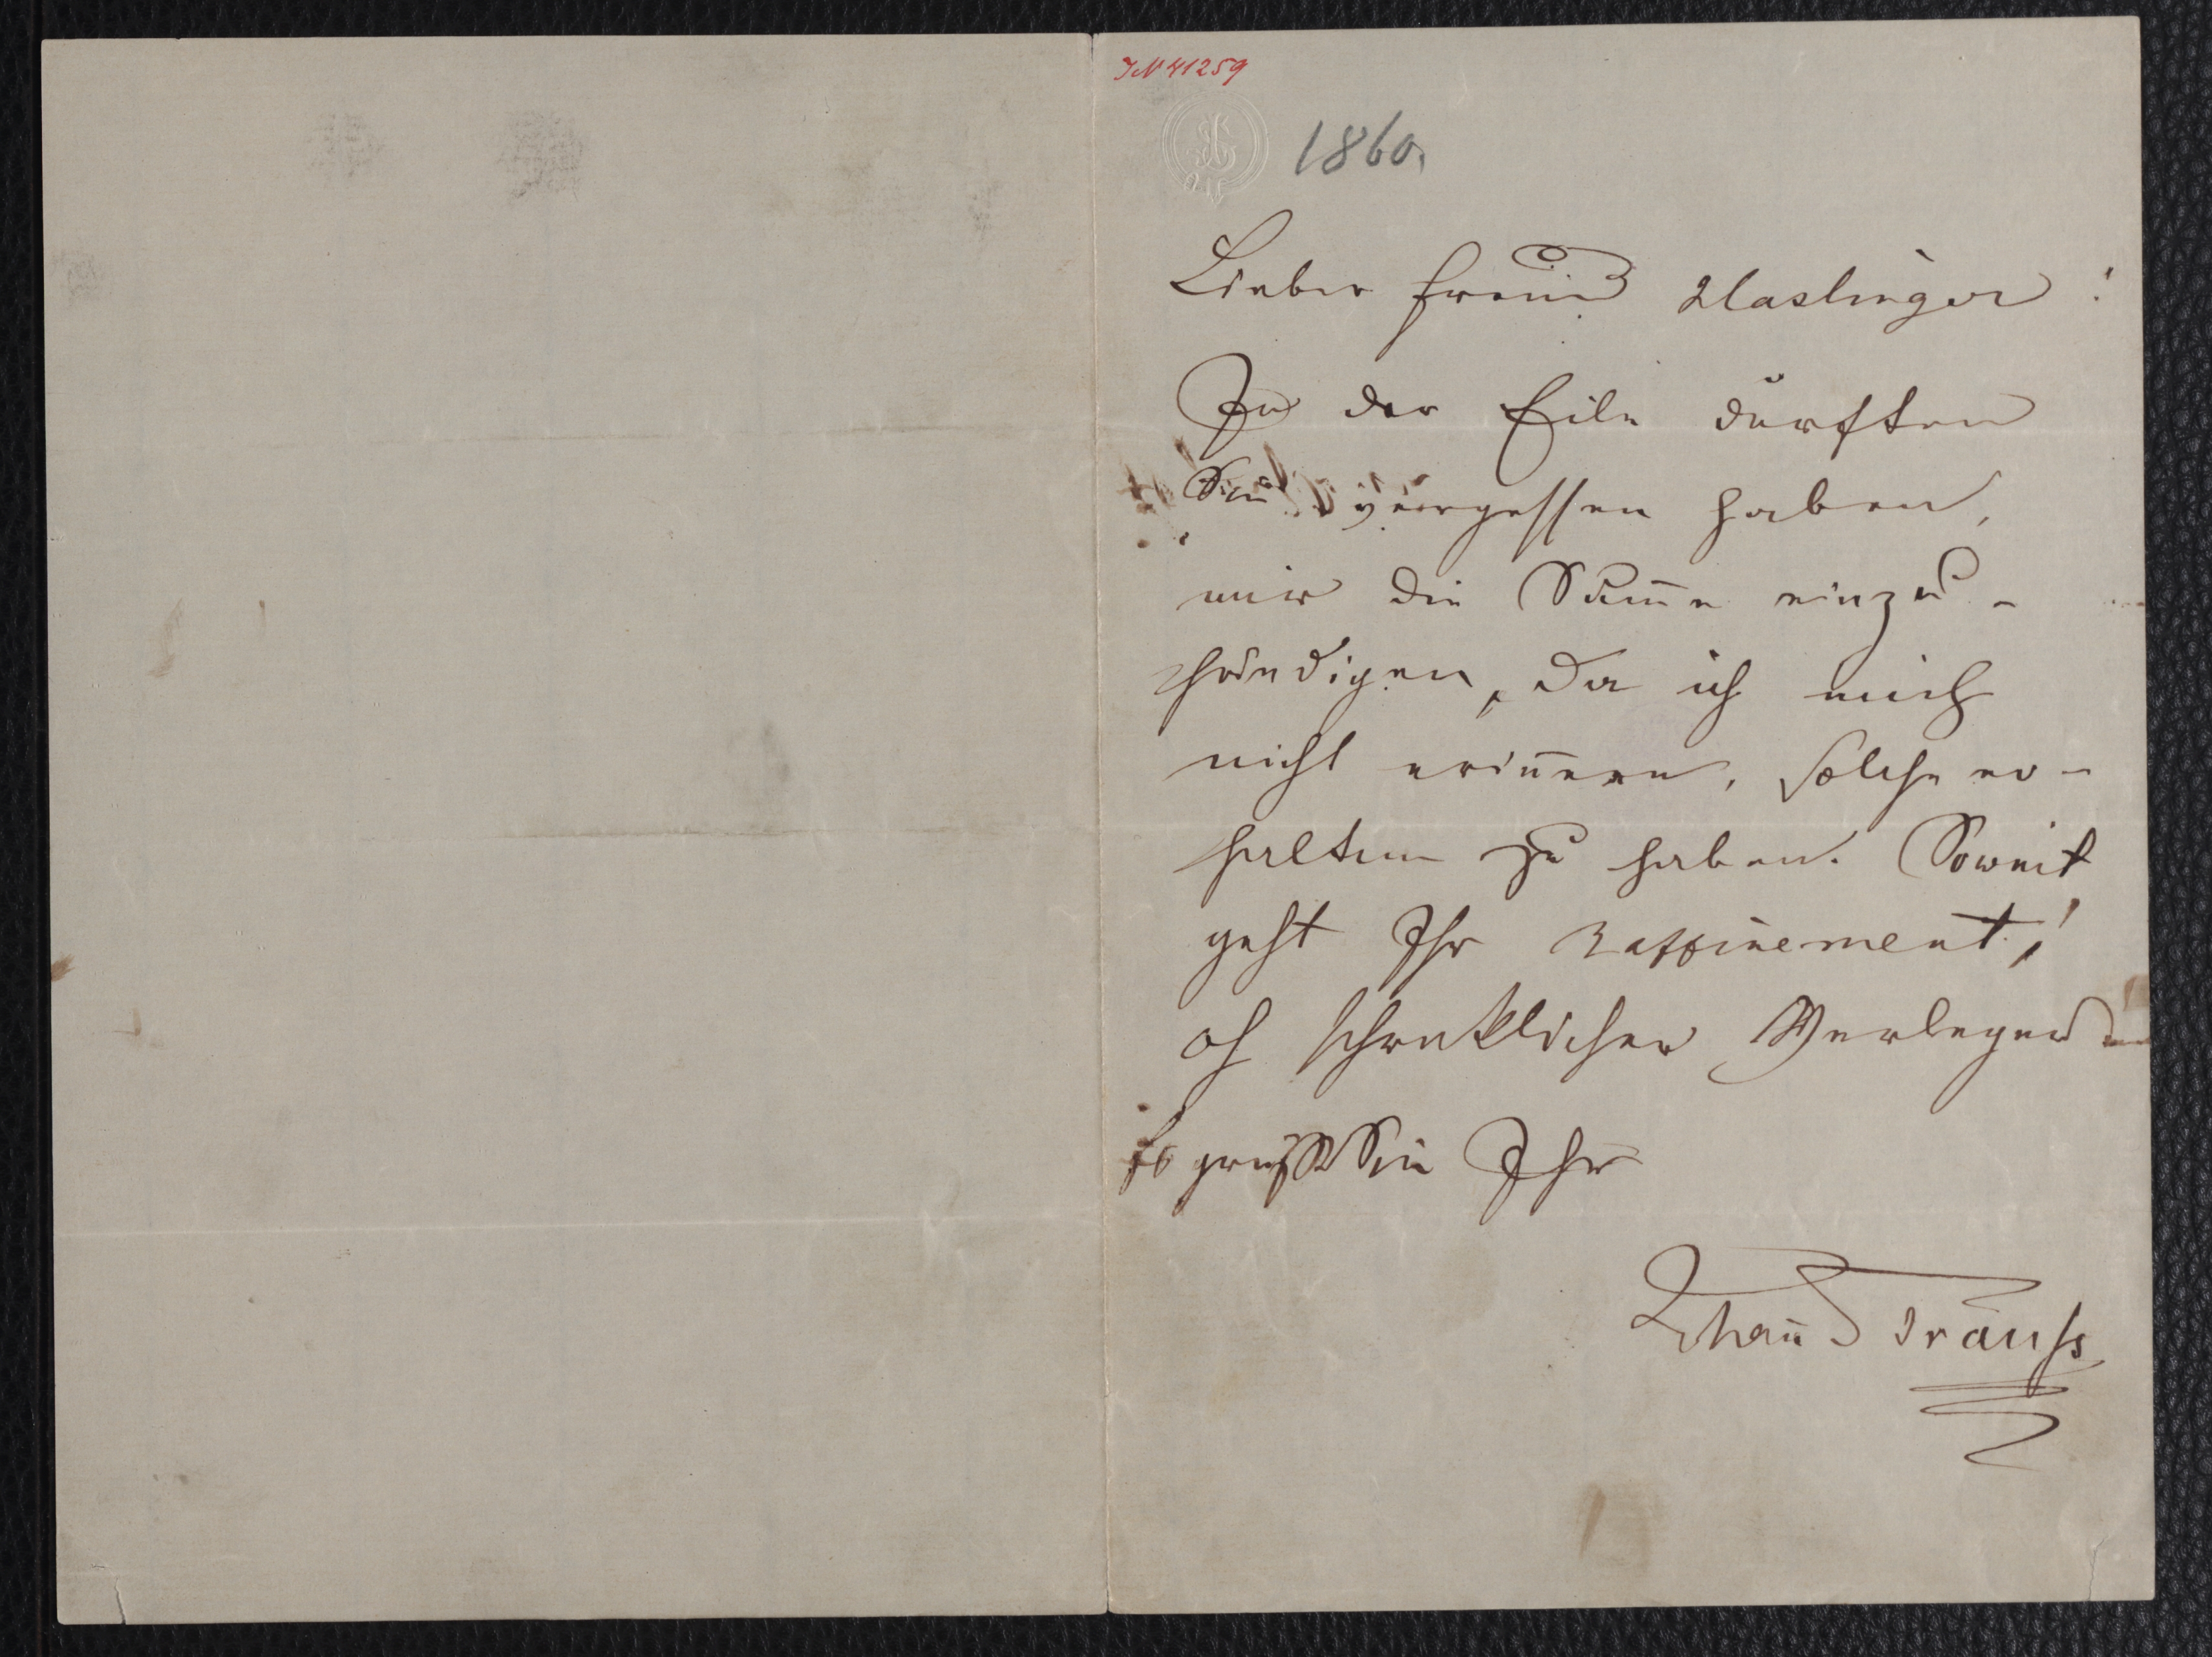 IN 41259
1860.
Lieber Freund Haslinger!
In der Eile dürften
Sie vergessen haben,
mir die Summe einzu-
händigen, da ich mich
nicht erinnere, solche er-
halten zu haben. Soweit
geht Ihr Raffinement!
oh schreklicher Verleger
Es grüßt Sie Ihr
Johann Strauss